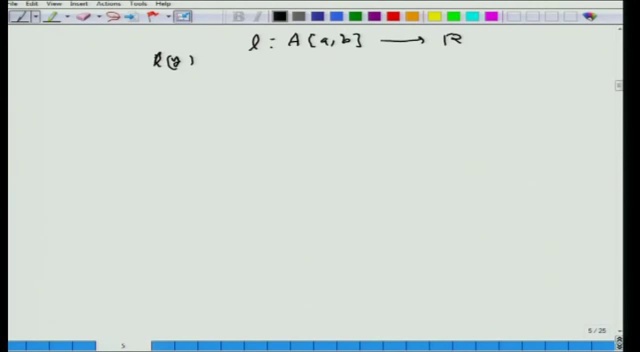 File Edit View Insert Actions Tools Help
l : A [a,b] ⟶ R
l(y)
5 / 25
5